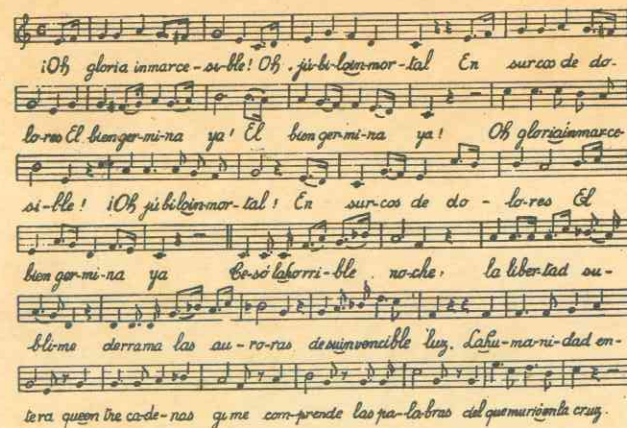 ¡Oh gloria inmarce-si-ble! Oh jú-bi-loin-mor-tal En surcos de do-
lo-res El bien ger-mi-na ya! El bien ger-mi-na ya! Oh gloriainmarce-
si-ble! ¡Oh júbiloin-mor-tal! En sur-cos de do-lo-res El
bien ger-mi-na ya Ce-só lahorri-ble no-che, la liber-tad su-
bli-me derrama las au-ro-ras desuinvencible luz. Lahu-ma-ni-dad en-
tera queen tre ca-de-nas gi me com-prende las pa-la-bras del quemurióenla cruz.